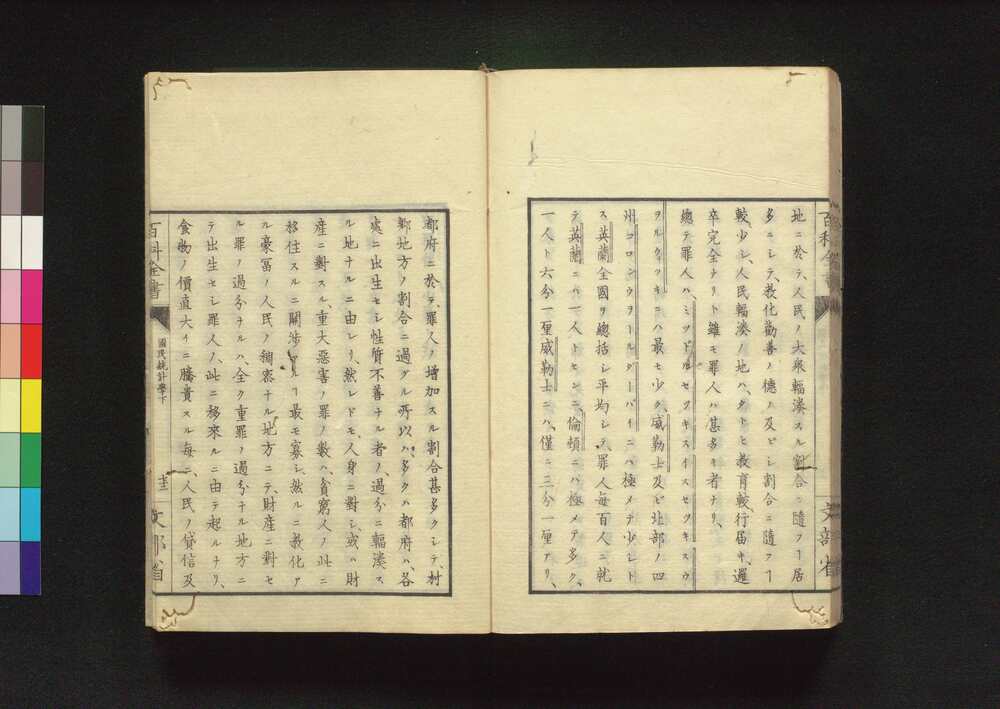 地ニ於テ、人民ノ大衆輻湊スル割合ニ隨フヿ居
多ニシテ、敎化勸善ノ德ノ及ビシ割合ニ隨フヿ
較、少シ、人民輻湊ノ地ハ、タトヒ敎育較、行届キ、邏
卒完全ナリト雖モ罪人ハ甚多キ者ナリ、
總テ罪人ハ、ミツドルセツキスイスセツキスウ
ヲルウヮツキニハ最モ少ク、威勒士及ビ北部ノ四
州コロンウヲールダーバイニハ極メテ少シトド
ス英蘭全國ヲ總括シ平均シテ、罪人每百人ニ就
テ英蘭ニハ一人トセンニ、倫頓ニハ極メテ多ク、
一人ト六分一厘威勒士ニハ、僅ニ三分一厘アリ、
百科全書
文部省
都府ニ於テ、罪人ノ增加スル割合甚多クシテ、村
鄕地方ノ割合ニ過グル所以ハ、多クハ都府ハ、各
處ニ出生セシ性質不善ナル者ノ、過分ニ輻湊ス
ル地ナルニ由レリ、然レドモ、人身ニ對シ、或ハ財
產ニ對スル、重大惡害ノ罪ノ數ハ、貧窮人ノ此ニ
移住スルニ關涉スルヿ最モ寡シ、然ルニ敎化ア
ル豪冨ノ人民ノ稠密ナル地方ニテ、財產ニ對セ
ル罪ノ過分ナルハ、全ク重罪ノ過分ナル地方ニ
テ出生セシ罪人ノ、此ニ移來ルニ由テ起ルナリ、
食物ノ價直大イニ騰貴スル每ニ、人民ノ貸信及
百科全書
國民統計學下
十三
文部省